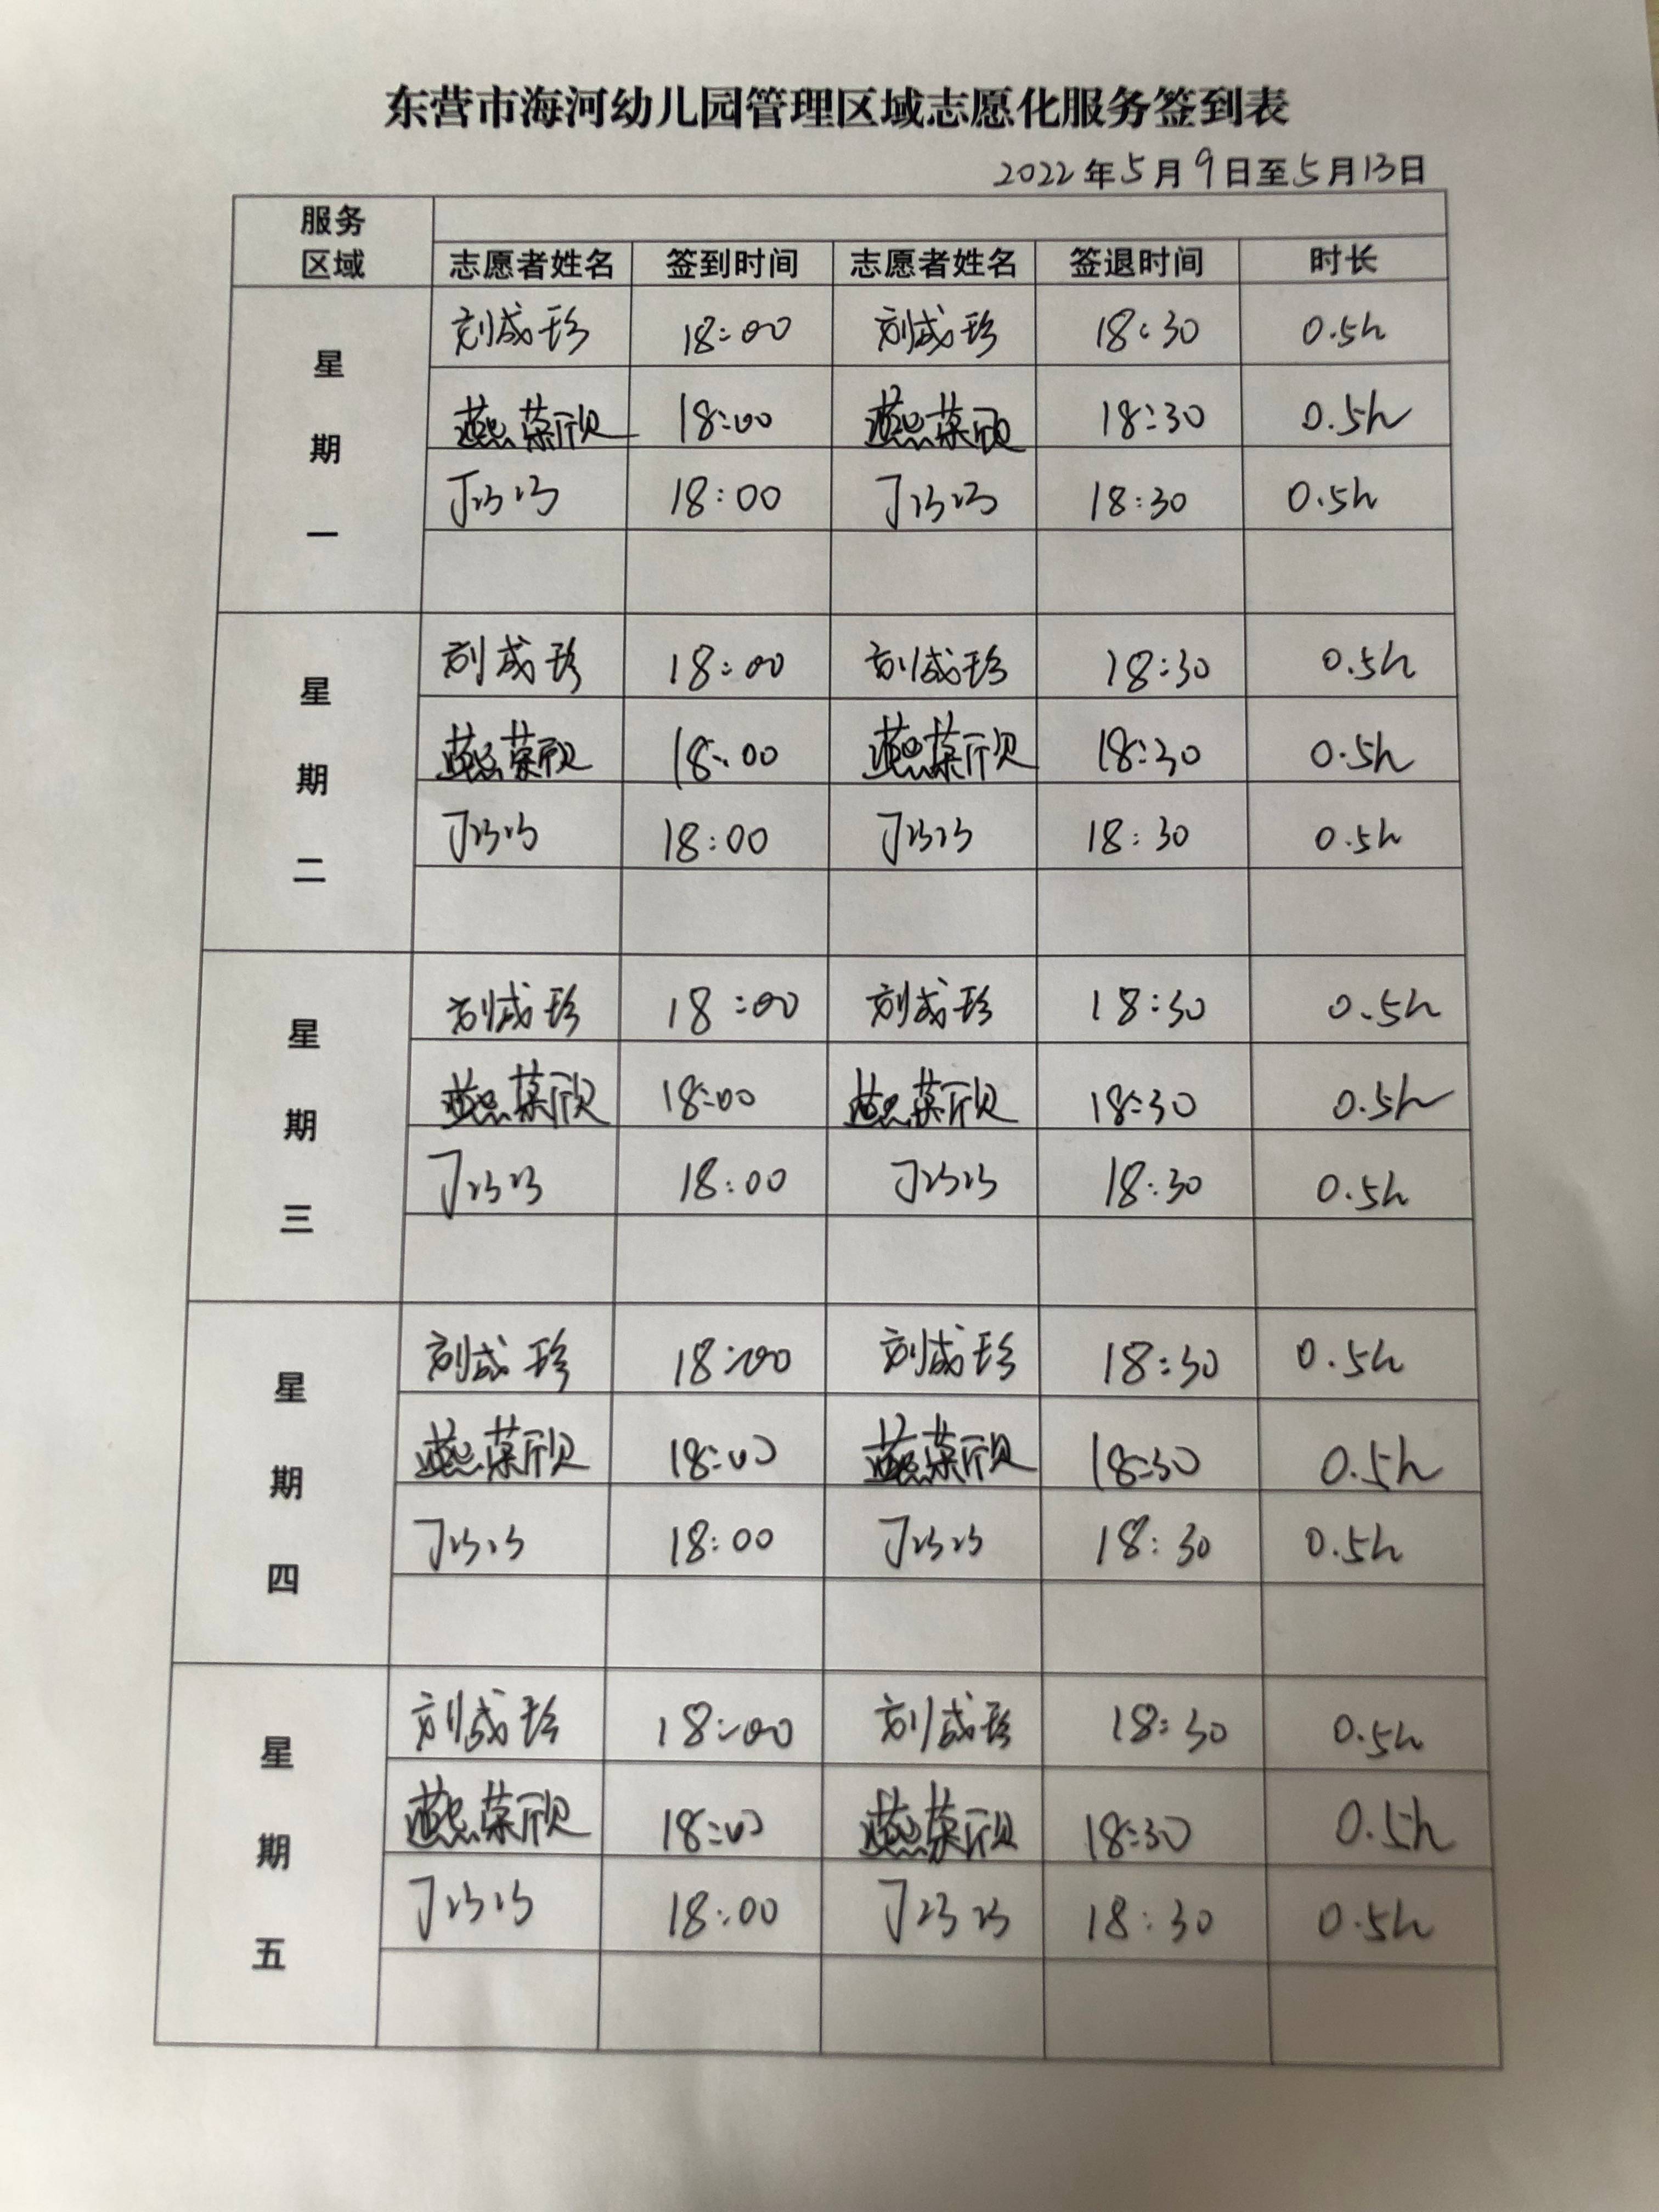 东营市海河幼儿园管理区域志愿化服务签到表
2022年5月9日至5月13日
服务
区域
志愿者姓名 签到时间 志愿者姓名 签退时间 时长
星期一
刘成珍 18:00 刘成珍 18:30 0.5h
燕荣欣 18:00 燕荣欣 18:30 0.5h
丁巧巧 18:00 丁巧巧 18:30 0.5h
星期二
刘成珍 18:00 刘成珍 18:30 0.5h
燕荣欣 18:00 燕荣欣 18:30 0.5h
丁巧巧 18:00 丁巧巧 18:30 0.5h
星期三
刘成珍 18:00 刘成珍 18:30 0.5h
燕荣欣 18:00 燕荣欣 18:30 0.5h
丁巧巧 18:00 丁巧巧 18:30 0.5h
星期四
刘成珍 18:00 刘成珍 18:30 0.5h
燕荣欣 18:00 燕荣欣 18:30 0.5h
丁巧巧 18:00 丁巧巧 18:30 0.5h
星期五
刘成珍 18:00 刘成珍 18:30 0.5h
燕荣欣 18:00 燕荣欣 18:30 0.5h
丁巧巧 18:00 丁巧巧 18:30 0.5h